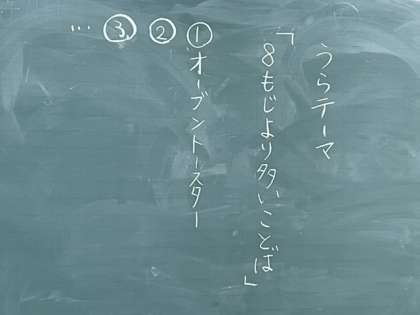 うらテーマ
「8もじより多いことば」
①オーブントースター
②
③
…